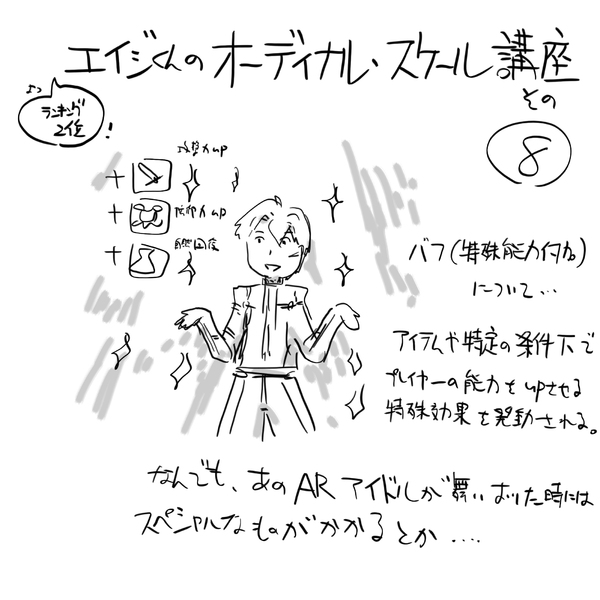 エイジくんのオーディナル・スケール講座
その
8
ランキング
2位
!
攻撃力up
+
防御力up
+
自然回復
+
バフ(特殊能力付加)
について…
アイテムや特定の条件下で
プレイヤーの能力をupさせる
特殊効果を発動される。
なんでも、あのARアイドルが舞いおりた時には
スペシャルなものがかかるとか....